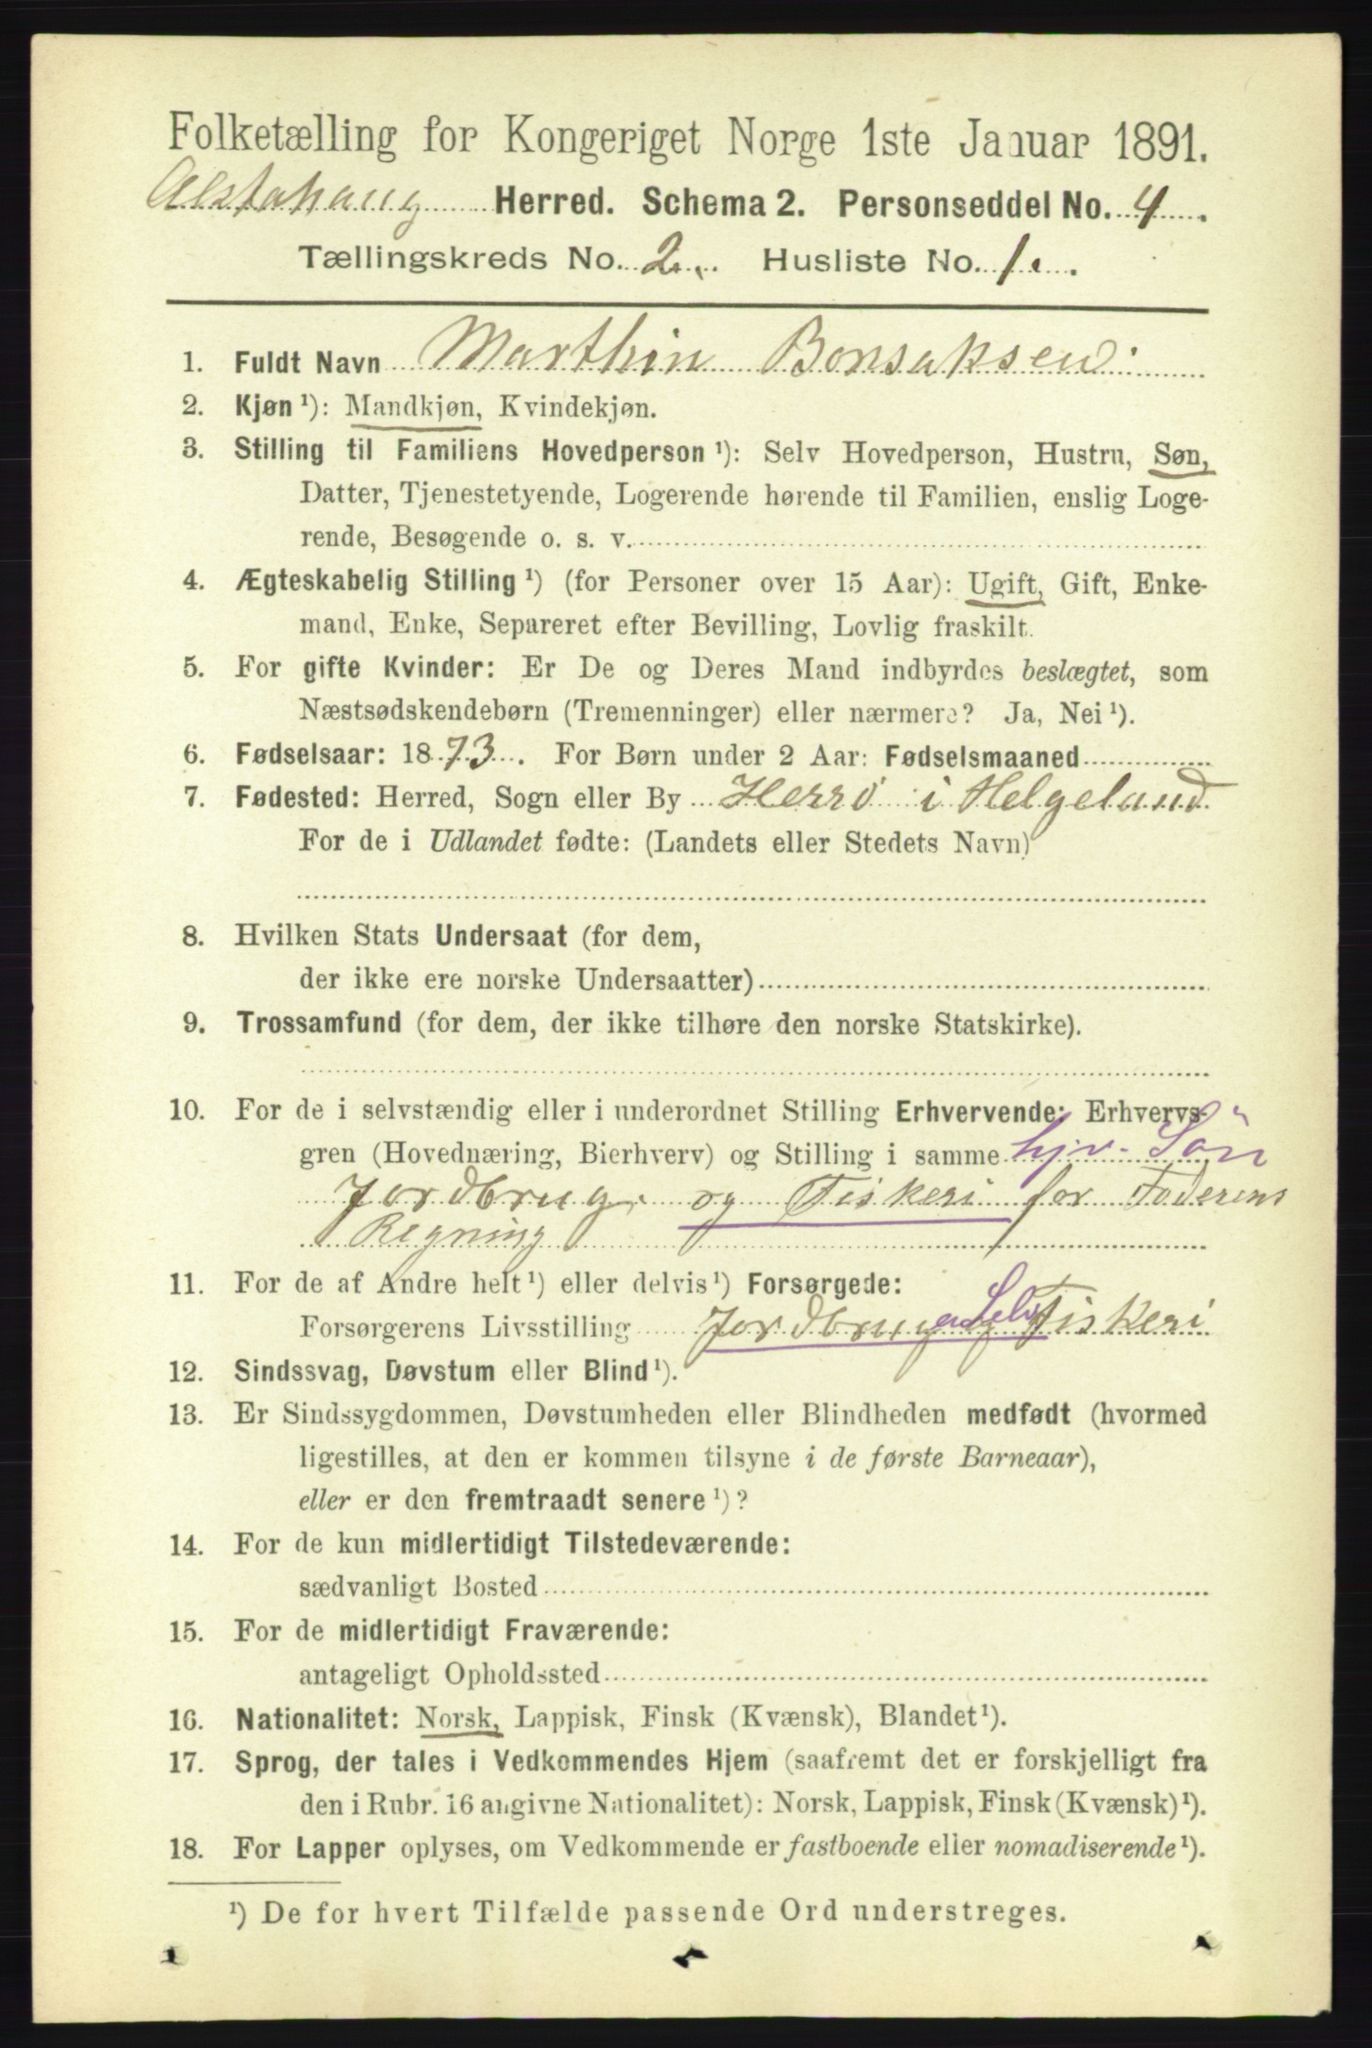 Folketælling for Kongeriget Norge 1ste Januar 1891.
Alstahaug Herred. Schema 2. Personseddel No. 4.
Tællingskreds No. 2. Husliste No. 1.
1. Fuldt Navn Marthin Bonsaksen
2. Kjøn ¹): Mandkjøn, Kvindekjøn.
3. Stilling til Familiens Hovedperson ¹): Selv Hovedperson, Hustru, Søn,
Datter, Tjenestetyende, Logerende hørende til Familien, enslig Loge-
rende, Besøgende o. s. v.
4. Ægteskabelig Stilling ¹) (for Personer over 15 Aar): Ugift, Gift, Enke-
mand, Enke, Separeret efter Bevilling, Lovlig fraskilt.
5. For gifte Kvinder: Er De og Deres Mand indbyrdes beslægtet, som
Næstsødskendebørn (Tremenninger) eller nærmere? Ja, Nei ¹).
6. Fødselsaar: 1873. For Børn under 2 Aar: Fødselsmaaned
7. Fødested: Herred, Sogn eller By Herrø i Helgeland
For de i Udlandet fødte: (Landets eller Stedets Navn)
8. Hvilken Stats Undersaat (for dem,
der ikke ere norske Undersaatter)
9. Trossamfund (for dem, der ikke tilhøre den norske Statskirke).
10. For de i selvstændig eller i underordnet Stilling Erhvervende: Erhvervs-
gren (Hovednæring, Bierhverv) og Stilling i samme hjv. Søn
Jordbrug og Fiskeri for Faderens
Regning
11. For de af Andre helt ¹) eller delvis ¹) Forsørgede:
Forsørgerens Livsstilling Jordbrug og Fiskeri
12. Sindssvag, Døvstum eller Blind ¹).
13. Er Sindssygdommen, Døvstumheden eller Blindheden medfødt (hvormed
ligestilles, at den er kommen tilsyne i de første Barneaar),
eller er den fremtraadt senere ¹)?
14. For de kun midlertidigt Tilstedeværende:
sædvanligt Bosted
15. For de midlertidigt Fraværende:
antageligt Opholdssted
16. Nationalitet: Norsk, Lappisk, Finsk (Kvænsk), Blandet ¹).
17. Sprog, der tales i Vedkommendes Hjem (saafremt det er forskjelligt fra
den i Rubr. 16 angivne Nationalitet): Norsk, Lappisk, Finsk (Kvænsk) ¹).
18. For Lapper oplyses, om Vedkommende er fastboende eller nomadiserende ¹).
¹) De for hvert Tilfælde passende Ord understreges.